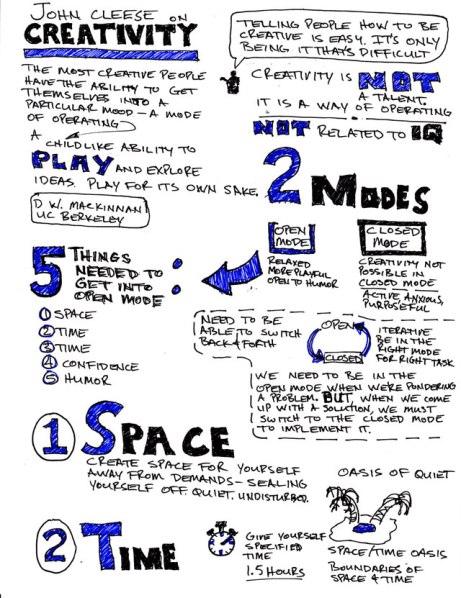 JOHN CLEESE ON
CREATIVITY
THE MOST CREATIVE PEOPLE
HAVE THE ABILITY TO GET
THEMSELVES INTO A
PARTICULAR MOOD - A MODE
OF OPERATING
A CHILDLIKE ABILITY TO
PLAY AND EXPLORE
IDEAS. PLAY FOR ITS OWN SAKE.
D W. MACKINNAN
UC BERKELEY
TELLING PEOPLE HOW TO BE
CREATIVE IS EASY. IT'S ONLY
BEING IT THATS DIFFICULT
CREATIVITY IS NOT
A TALENT.
IT IS A WAY OF OPERATING
NOT RELATED TO IQ
2 MODES
OPEN
MODE
RELAXED
MORE PLAYFUL
OPEN TO HUMOR
CLOSED
MODE
CREATIVITY NOT
POSSIBLE IN
CLOSED MODE
ACTIVE, ANXIOUS,
PURPOSEFUL
5 THINGS
NEEDED TO
GET INTO
OPEN MODE :
1 SPACE
2 TIME
3 TIME
4 CONFIDENCE
5 HUMOR
NEED TO BE
ABLE TO SWITCH
BACK & FORTH
OPEN
CLOSED
ITERATIVE
BE IN THE
RIGHT MODE
FOR RIGHT TASK
WE NEED TO BE IN THE
OPEN MODE WHEN WE'RE PONDERING
A PROBLEM. BUT, WHEN WE COME
UP WITH A SOLUTION, WE MUST
SWITCH TO THE CLOSED MODE
TO IMPLEMENT IT.
1 SPACE
CREATE SPACE FOR YOURSELF
AWAY FROM DEMANDS - SEALING
YOURSELF OFF QUIET. UNDISTURBED.
OASIS OF QUIET
SPACE/TIME OASIS
BOUNDARIES OF
SPACE & TIME
2 TIME
GIVE YOURSELF
SPECIFIED
TIME
1.5 HOURS